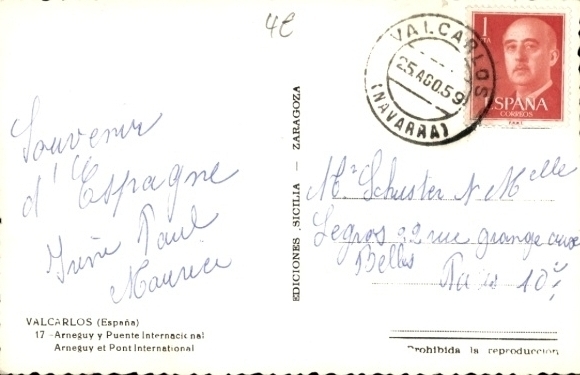 4€
VALCARLOS
25.AGO.59
(NAVARRA)
1
PTA
ESPAÑA
CORREOS
Souvenir
d'Espagne
Irène Paul
Maurice
EDICIONES SICILIA - ZARAGOZA
Mr Schuster Melle
Legros 22 rue grange aux
Belles
Paris 10
VALCARLOS (España)
17 - Arneguy y Puente Internacional
Arneguy et Pont International
Prohibida la reproduccion